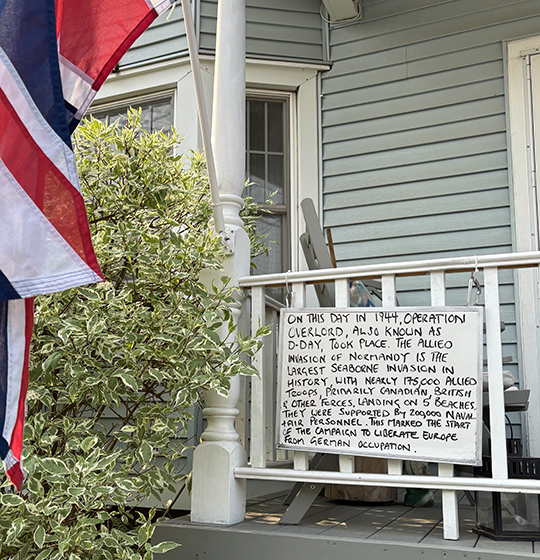 ON THIS DAY IN 1944, OPERATION
OVERLORD, ALSO KNOWN AS
D-DAY, TOOK PLACE. THE ALLIED
INVASION OF NORMANDY IS THE
LARGEST SEABORNE INVASION IN
HISTORY, WITH NEARLY 175,000 ALLIED
TROOPS, PRIMARILY CANADIAN, BRITISH
& OTHER FORCES, LANDING ON 5 BEACHES.
THEY WERE SUPPORTED BY 200,000 NAVAL
+ AIR PERSONNEL. THIS MARKED THE START
OF THE CAMPAIGN TO LIBERATE EUROPE
FROM GERMAN OCCUPATION.